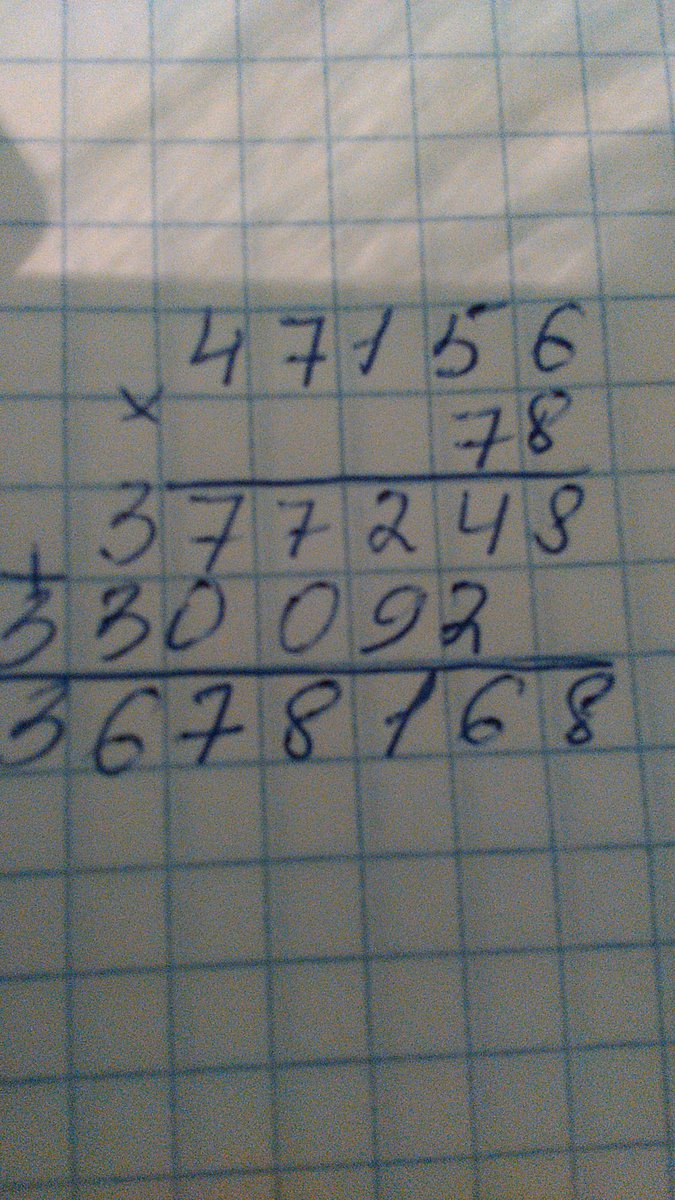 47156
×
78
377248
+
330092
3678168